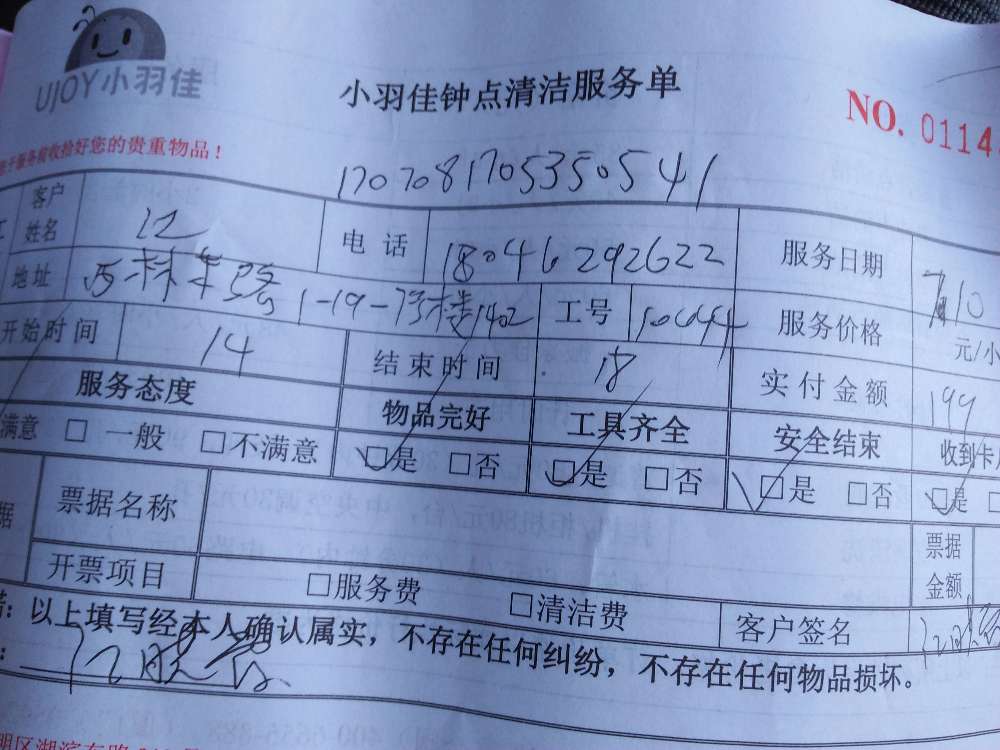 UJOY小羽佳
小羽佳钟点清洁服务单
NO. 0114
于服务前收拾好您的贵重物品！
170708170535054 1
客户姓名 江 电话 18046292622 服务日期 7.10
地址 西林东路 1-19-7号楼1402 工号 服务价格 元/小
开始时间 14 结束时间 18 实付金额 199
服务态度 物品完好 工具齐全 安全结束 收到卡
满意 □ 一般 □不满意 □是 □否 □是 □否 □是 □否 □是
据 票据名称 票据金额
开票项目 □服务费 □清洁费 客户签名
诺：以上填写经本人确认属实，不存在任何纠纷，不存在任何物品损坏。